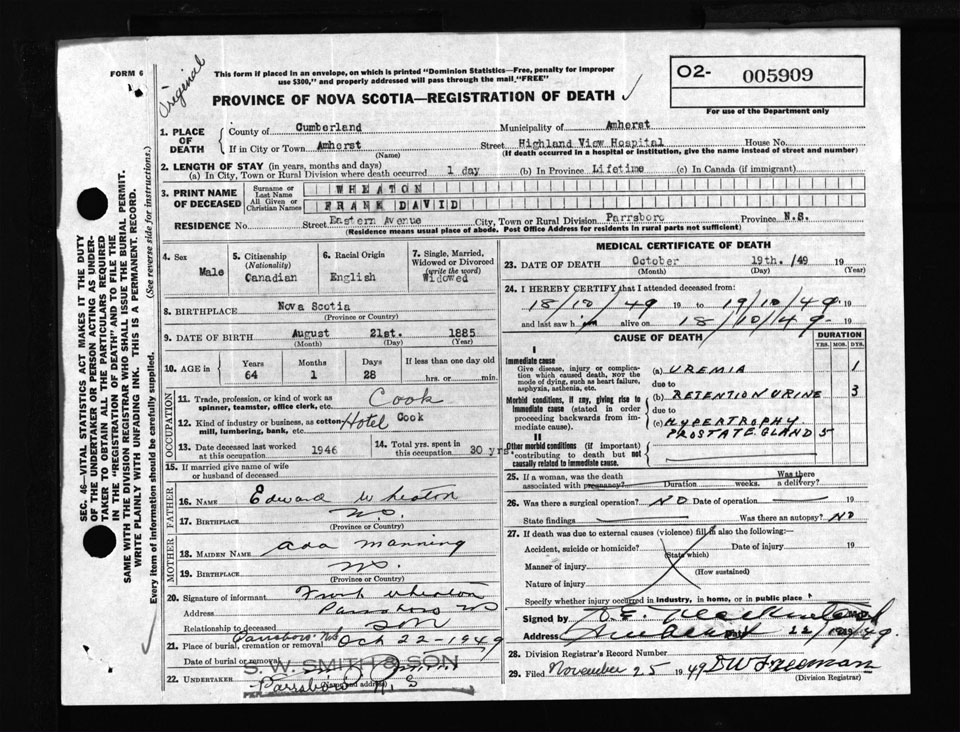 FORM 6
Original
This form if placed in an envelope, on which is printed "Dominion Statistics—Free, penalty for improper
use $300," and properly addressed will pass through the mail "FREE"
PROVINCE OF NOVA SCOTIA—REGISTRATION OF DEATH
O2- 005909
For use of the Department only
SEC. 46—VITAL STATISTICS ACT MAKES IT THE DUTY
OF THE UNDERTAKER OR PERSON ACTING AS UNDER-
TAKER TO OBTAIN ALL THE PARTICULARS REQUIRED
IN THE "REGISTRATION OF DEATH" AND TO FILE THE
SAME WITH THE DIVISION REGISTRAR WHO SHALL ISSUE THE BURIAL PERMIT.
WRITE PLAINLY WITH UNFADING INK. THIS IS A PERMANENT RECORD.
Every item of information should be carefully supplied. (See reverse side for instructions.)
1. PLACE OF DEATH
County of Cumberland Municipality of Amherst
If in City or Town Amherst Street Highland View Hospital House No.
(Name) (If death occurred in a hospital or institution, give the name instead of street and number)
2. LENGTH OF STAY (in years, months and days)
(a) In City, Town or Rural Division where death occurred 1 day (b) In Province Lifetime (c) In Canada (if immigrant)
3. PRINT NAME OF DECEASED
Surname or Last Name WHEATON
All Given or Christian Names FRANK DAVID
RESIDENCE No. Street Eastern Avenue City, Town or Rural Division Parrsboro Province N.S.
(Residence means usual place of abode. Post Office Address for residents in rural parts not sufficient)
4. Sex Male
5. Citizenship (Nationality) Canadian
6. Racial Origin English
7. Single, Married, Widowed or Divorced (write the word) Widowed
8. BIRTHPLACE Nova Scotia
(Province or Country)
9. DATE OF BIRTH August 21st. 1885
(Month) (Day) (Year)
10. AGE in Years 64 Months 1 Days 28 If less than one day old hrs. or min.
OCCUPATION
11. Trade, profession or kind of work as spinner, teamster, office clerk, etc. Cook
12. Kind of industry or business, as cotton mill, lumbering, bank, etc. Hotel Cook
13. Date deceased last worked at this occupation 1946
14. Total yrs. spent in this occupation 30 yrs.
15. If married give name of wife or husband of deceased
FATHER
16. NAME Edward Wheaton
17. BIRTHPLACE NS.
(Province or Country)
MOTHER
18. MAIDEN NAME Ada Manning
19. BIRTHPLACE NS.
(Province or Country)
20. Signature of informant Frank Wheaton
Address Parrsboro NS
Relationship to deceased SON
21. Place of burial, cremation or removal Parrsboro NS Oct 22-1949
Date of burial or removal
S. W. SMITH & SON
22. UNDERTAKER Parrsboro N. S
(Name and address)
PER
MEDICAL CERTIFICATE OF DEATH
23. DATE OF DEATH October 19th. /49 19
(Month) (Day) (Year)
24. I HEREBY CERTIFY that I attended deceased from:
18/10/49 19 to 19/10/49 19
and last saw him alive on 18/10/49 19
CAUSE OF DEATH
DURATION
YRS. MOS. DYS.
I
Immediate cause
Give disease, injury or complication which caused death, NOT the mode of dying, such as heart failure, asphyxia, asthenia, etc.
(a) UREMIA 1
due to
Morbid conditions, if any, giving rise to immediate cause (stated in order proceeding backwards from immediate cause).
(b) RETENTION URINE 3
due to
(c) HYPERTROPHY PROSTATE GLAND 5
II
Other morbid conditions (if important) contributing to death but not causally related to immediate cause.
25. If a woman, was the death associated with pregnancy? Duration weeks. Was there a delivery?
26. Was there a surgical operation? NO Date of operation 19
State findings Was there an autopsy? NO
27. If death was due to external causes (violence) fill in also the following:
Accident, suicide or homicide? Date of injury 19
(State which)
Manner of injury
(How sustained)
Nature of injury
Specify whether injury occurred in industry, in home, or in public place
Signed by
Address Amherst 22/10/49
28. Division Registrar's Record Number
29. Filed November 25 1949 D W Freeman
(Division Registrar)